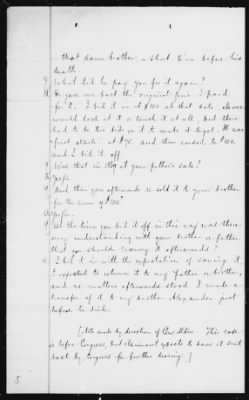 that same brother a short time before his
death.
Q What did he pay you for it again?
A He gave me back the original price I paid
for it. I bid it in at $100 at that sale.
would look at it or touch it at all. But there
had to be two bids on it to make it legal. It was
first started at $75. and then raised to $100
and I bid it off
Q Was that in 1859 at your father's sale?
A Yes.
Q And then you afterwards re sold it to your brother
for the same $100?
A Yes.
Q At the time you bid it off in this way was there
any understanding with your brother or father
that you should convey it afterwards?
A I bid it in with the expectation of saving it
I expected to return it to my father or brother,
and as matters afterwards stood I made a
transfer of it to my brother Alexander just
before he died.
[Note made by direction of The case
is before Congress, but claimant expects to have it sent
back by Congress for further hearing.]